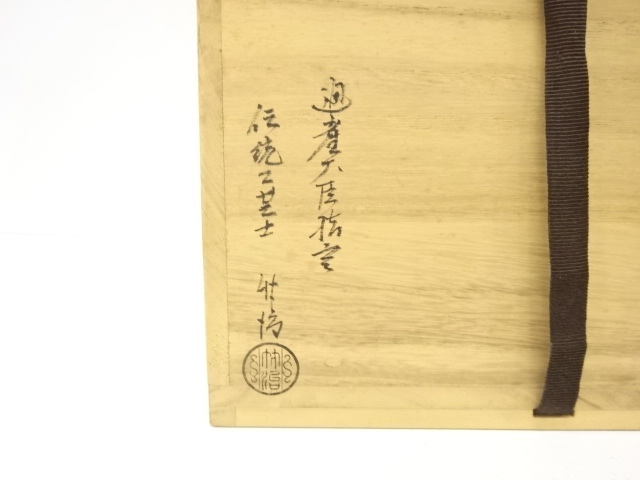 通産大臣指定
伝統工芸士